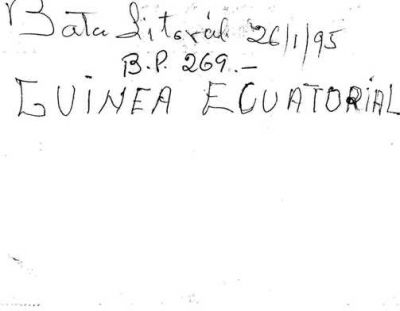 Bata Litorál 26/1/95
B.P. 269.—
GUINEA ECUATORIAL